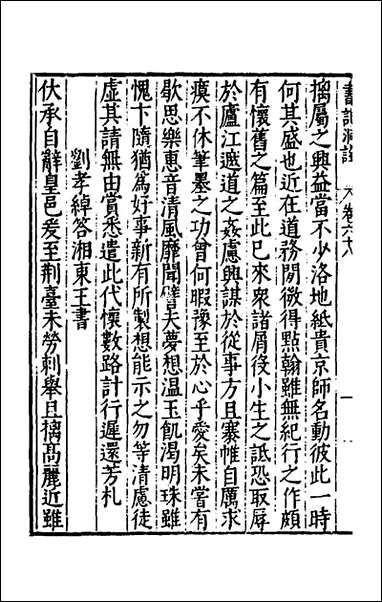 書記洞詮 卷六十八 一
摛屬之興益當不少洛地紙貴京師名動彼此一時
何其盛也近在道務閒微得點翰雖無紀行之作頗
有懷舊之篇至此已來衆諸屑役小生之詆恐取辱
於廬江遮道之姦慮興謀於從事方且褰帷自厲求
瘼不休筆墨之功曾何暇豫至於心乎愛矣未嘗有
歇思樂惠音清風靡聞譬夫夢想温玉飢渴明珠雖
愧卞隨猶為好事新有所製想能示之勿等清慮徒
虛其請無由賞悉遣此代懷數路計行遲還芳札
劉孝綽答湘東王書
伏承自辭皇邑爰至荆臺未勞刺舉且摛髙麗近雖